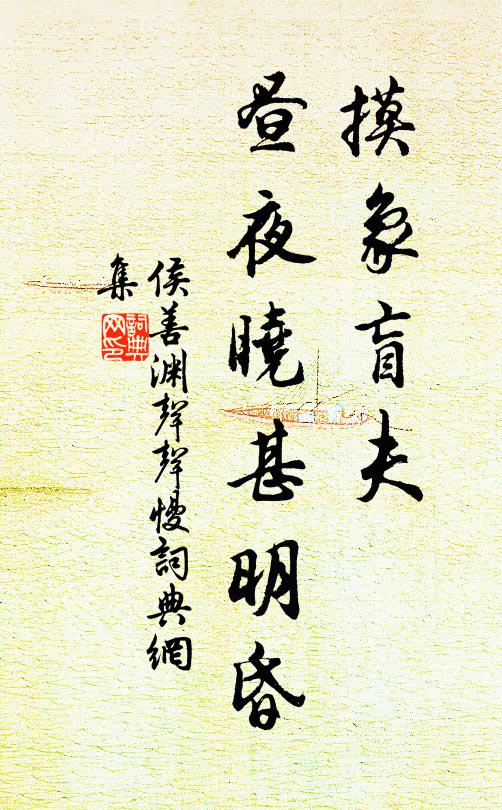 摸象盲夫
昼夜曉甚明昏
侯善渊聲聲慢詞典網
集
詞典
网印